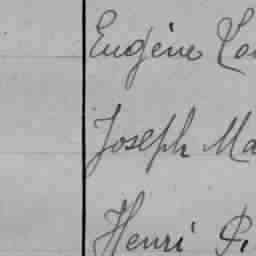 Eugène
Joseph Ma
Henri